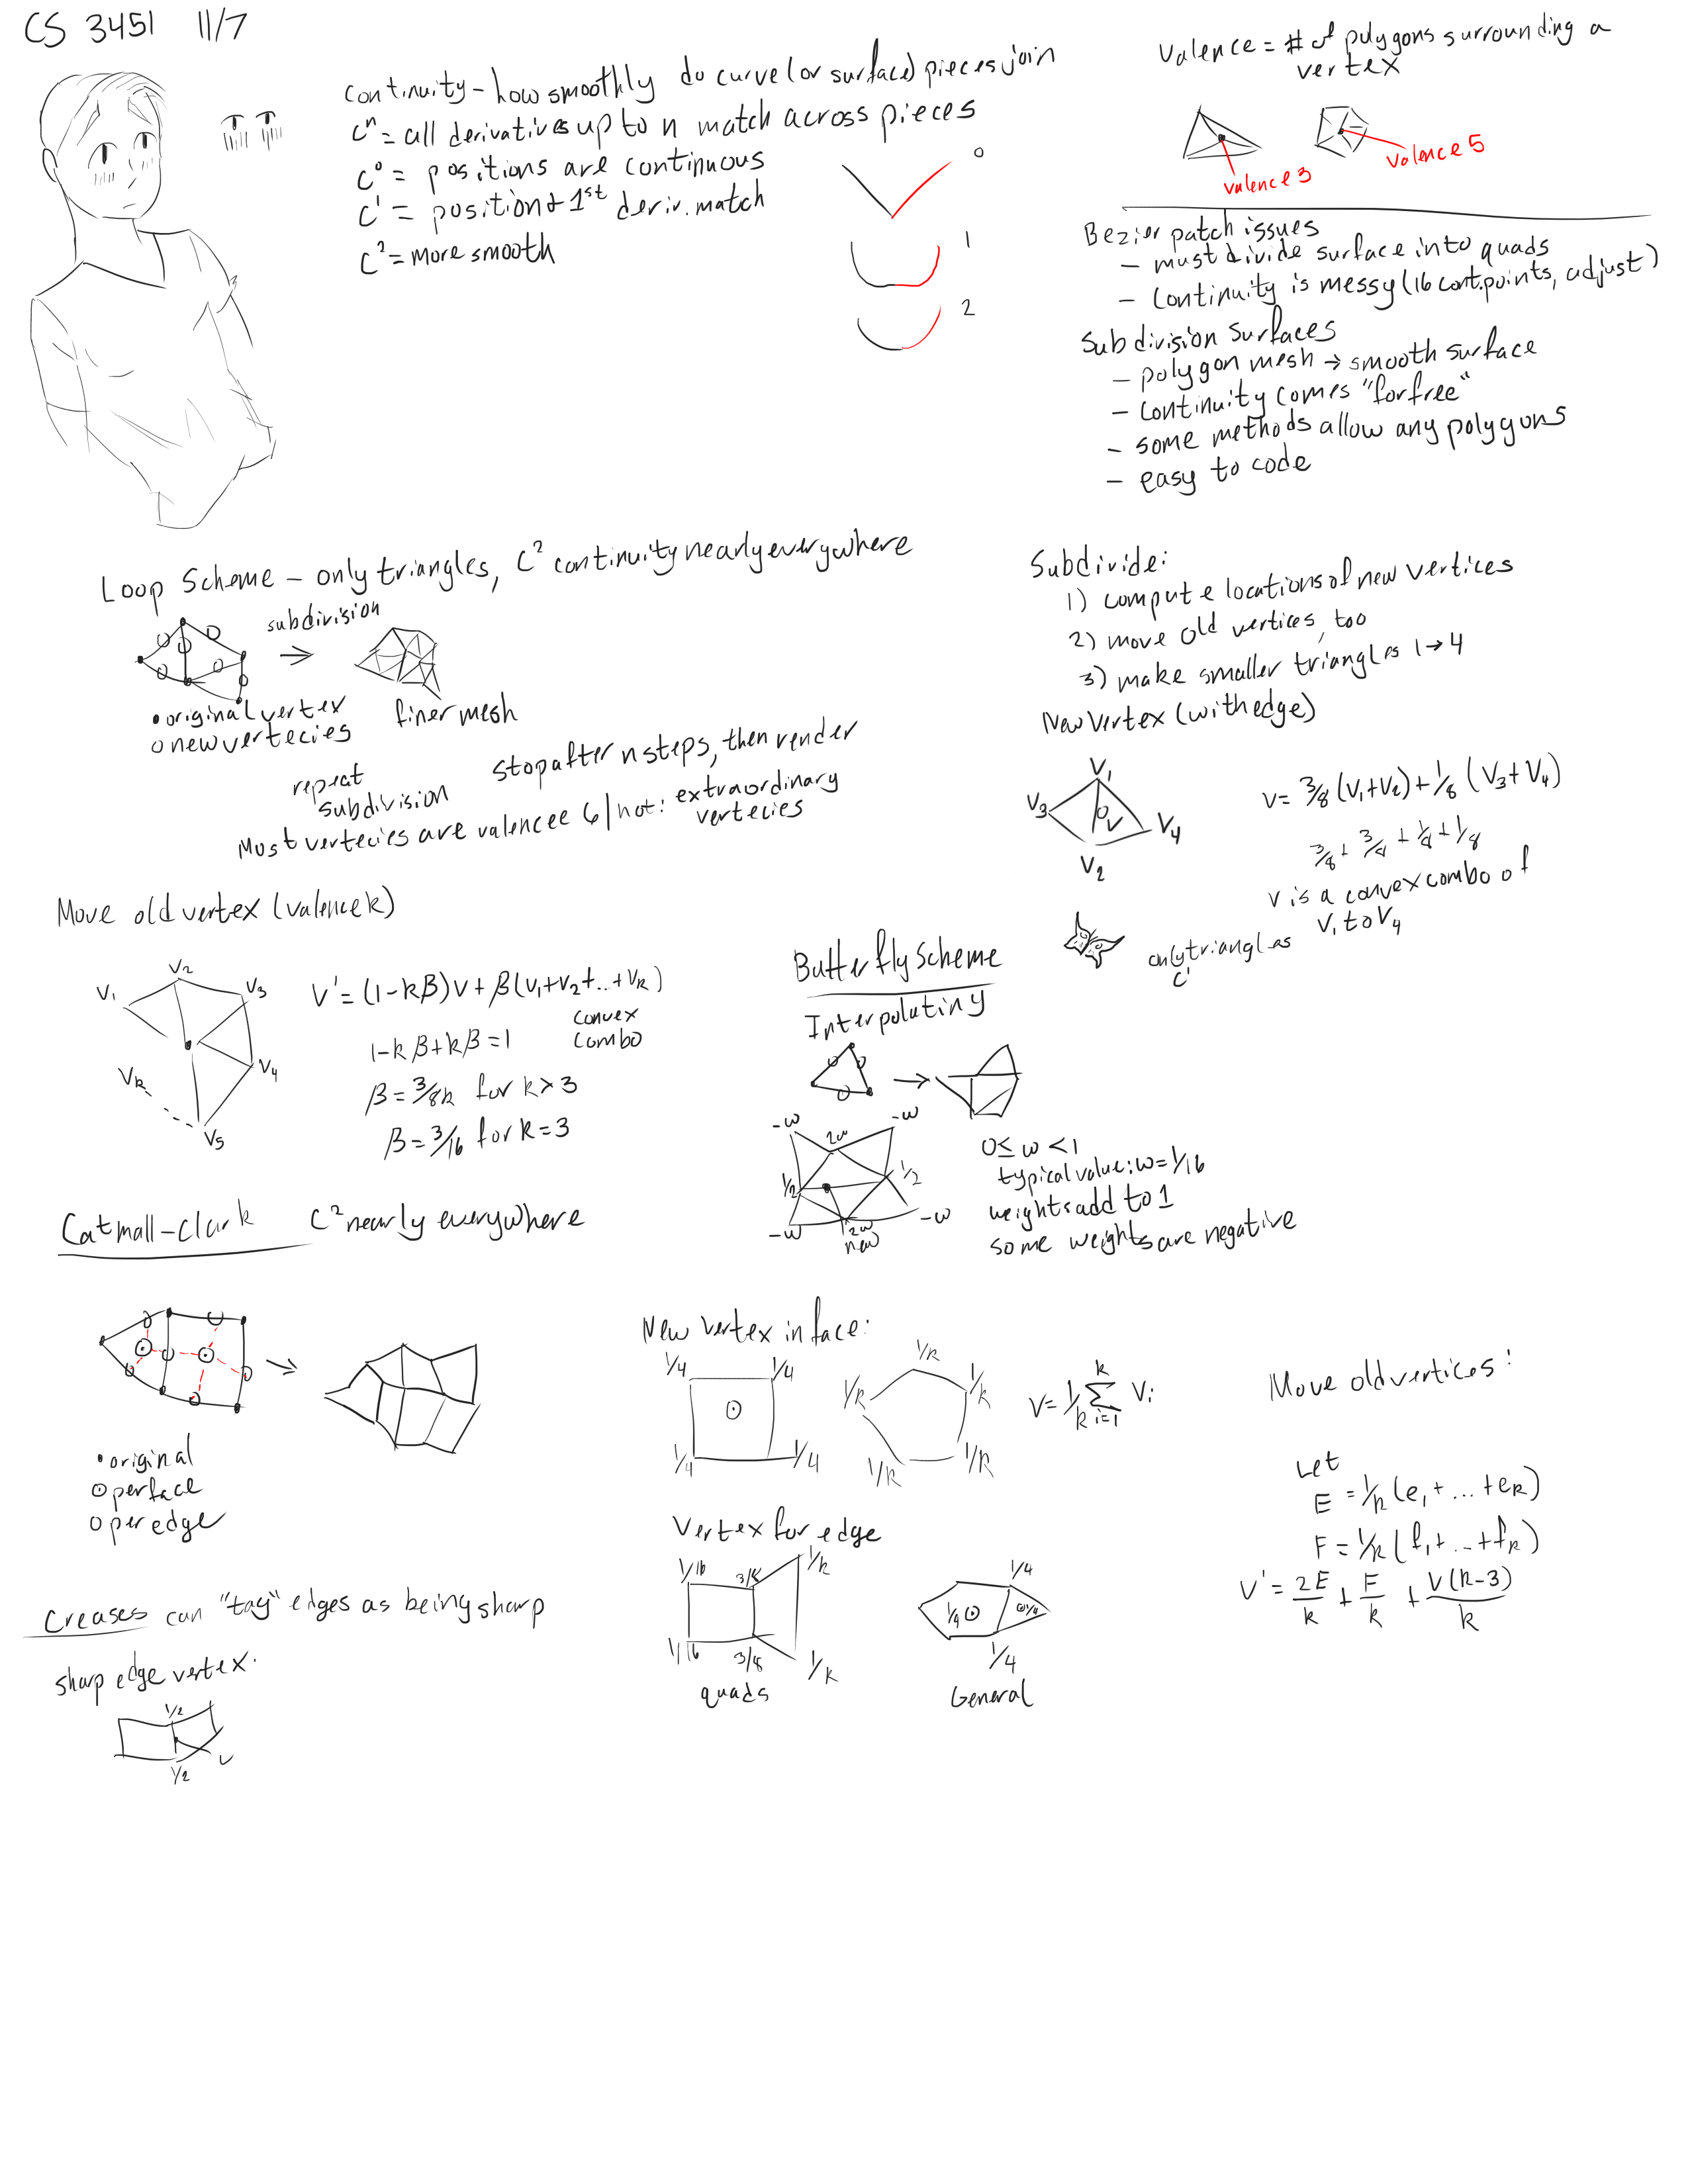 CS 3451 11/7
continuity - how smoothly do curve (or surface) pieces join
Cⁿ = all derivatives up to n match across pieces
C⁰ = positions are continuous
C¹ = position & 1st deriv. match
C² = more smooth
0
1
2
Valence = # of polygons surrounding a
vertex
valence 3
valence 5
Bezier patch issues
- must divide surface into quads
- continuity is messy (16 cont. points, adjust)
Subdivision Surfaces
- polygon mesh → smooth surface
- continuity comes "for free"
- some methods allow any polygons
- easy to code
Loop Scheme - only triangles, C² continuity nearly everywhere
subdivision
⇒
• original vertex
o new vertecies
finer mesh
repeat
subdivision
stop after n steps, then render
Most vertecies are valencee 6 | not: extraordinary
vertecies
Subdivide:
1) compute locations of new vertices
2) move old vertices, too
3) make smaller triangles 1→4
New Vertex (with edge)
V₁
V₃
V
V₄
V₂
V = 3/8 (V₁+V₂) + 1/8 (V₃+V₄)
3/8 + 3/8 + 1/8 + 1/8
V is a convex combo of
V₁ to V₄
Move old vertex (valence k)
V₁
V₂
V₃
V₄
V₅
Vk
V' = (1-kβ)V + β(V₁+V₂+...+Vk)
convex
combo
1-kβ+kβ=1
β = 3/8k for k>3
β = 3/16 for k=3
Butterfly Scheme
only triangles
C¹
Interpolating
→
-w
-w
2w
1/2
1/2
-w
2w
-w
new
0 ≤ w < 1
typical value: w=1/16
weights add to 1
some weights are negative
Catmall-Clark C² nearly everywhere
→
• original
⊙ per face
o per edge
New vertex in face:
1/4
1/4
1/4
1/4
1/k
1/k
1/k
1/k
1/k
V = 1/k Σ Vi
k
i=1
Vertex for edge
1/16
3/8
1/k
1/16
3/8
1/k
quads
1/4
1/4
1/4
1/4
General
Move old vertices:
Let
E = 1/k (e₁+...+ek)
F = 1/k (f₁+...+fk)
V' = 2E/k + F/k + V(k-3)/k
Creases can "tag" edges as being sharp
sharp edge vertex.
1/2
1/2
V